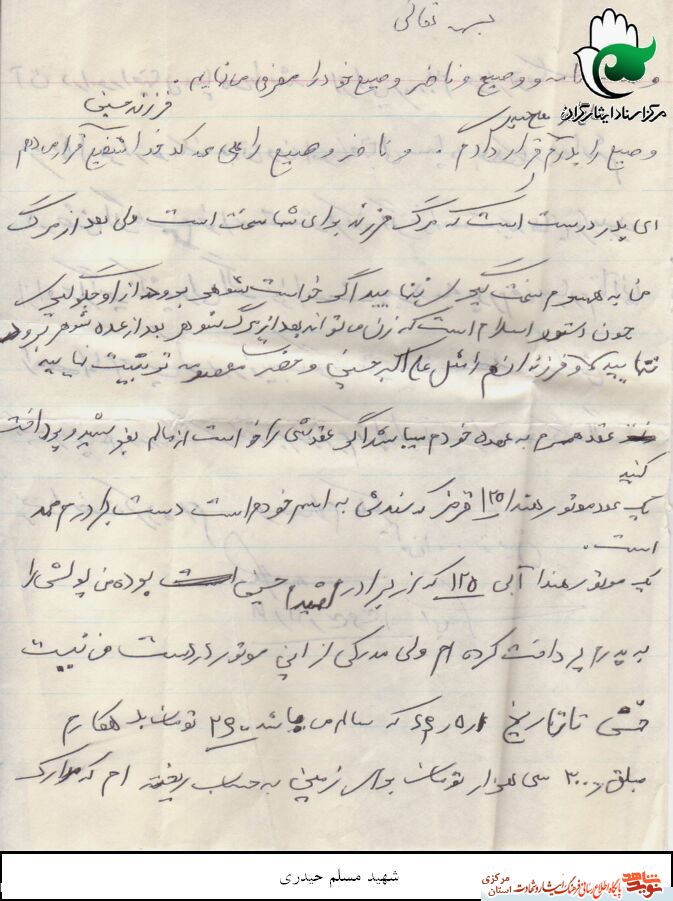 بسمه تعالی
مرکز اسناد ایثارگران
و وصیع و ناظر وصیع خود را معرفی می نمایم.
فرزند حسینی
وصیع را پدرم قرار دادم. و ناظر وصیع را علی قرار می دهم
ای پدر درست است که مرگ فرزند برای شما سخت است ولی بعد از مرگ
من به همسرم سخت گیری ننمایید اگر خواست شوهر برود از او جلوگیری
چون دستور اسلام است که زن می تواند بعد از مرگ شوهر بعد از عده شوهر برود
ننمایید و فرزندانم را مثل علی اکبر حسینی و حضرت معصومه تربیت نمایید
عقد همسرم به عهده خودم میباشد اگر عقدش را خواست از مالم بفروشید و پرداخت
کنید
یک عدد موتور هندا ۱۲۵ قرمز که سندش به اسم خودم است دست برادرم محمد
است.
یک موتور هندا آبی ۱۲۵ که از برادر (شهید) حسینی است بوده من پولش را
به پدرم پرداخت کرده ام ولی مدرکی از این موتور در دست من نیست
تا تاریخ که سالم می باشد ۲۶۰۰ تومان بدهکارم
مبلغ ۳۰۰۰۰ سی هزار تومان برای زمین به حساب ریخته ام که مدارک
شهید مسلم حیدری
نوید شاهد
پایگاه اطلاع رسانی فرهنگ ایثار و شهادت
استان مرکزی